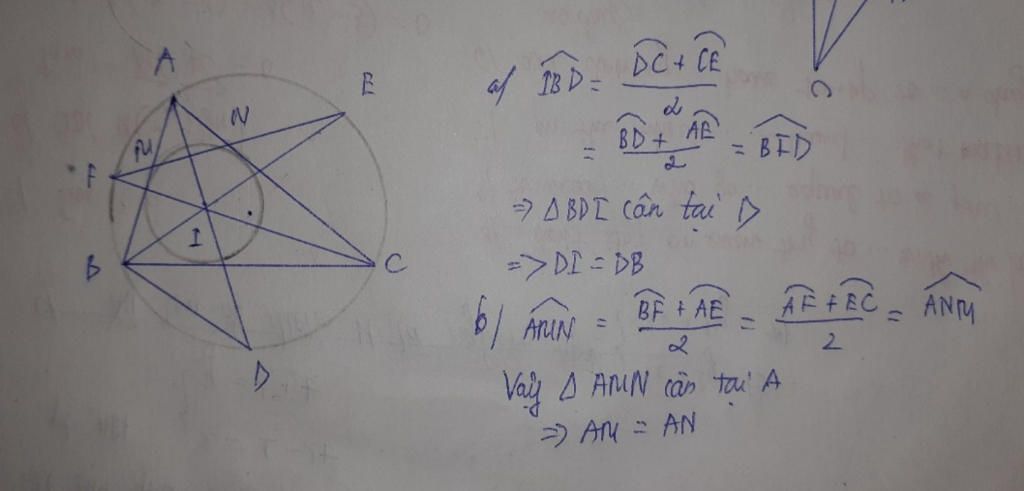 A
E
N
M
F
I
B
C
D
a/ \widehat{IBD} = \frac{\overset{\frown}{DC} + \overset{\frown}{CE}}{2}
= \frac{\overset{\frown}{BD} + \overset{\frown}{AE}}{2} = \widehat{BID}
=> Δ BDI cân tại D
=> DI = DB
b/ \widehat{AMN} = \frac{\overset{\frown}{BF} + \overset{\frown}{AE}}{2} = \frac{\overset{\frown}{AF} + \overset{\frown}{EC}}{2} = \widehat{ANM}
Vậy Δ AMN cân tại A
=> AM = AN